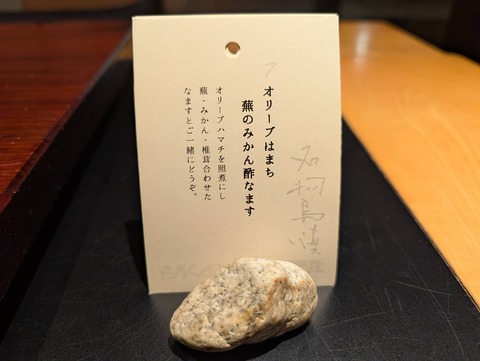 オリーブはまち
蕪のみかん酢なます
オリーブハマチを照煮にし
蕪・みかん・椎茸合わせた
なますとご一緒にどうぞ。